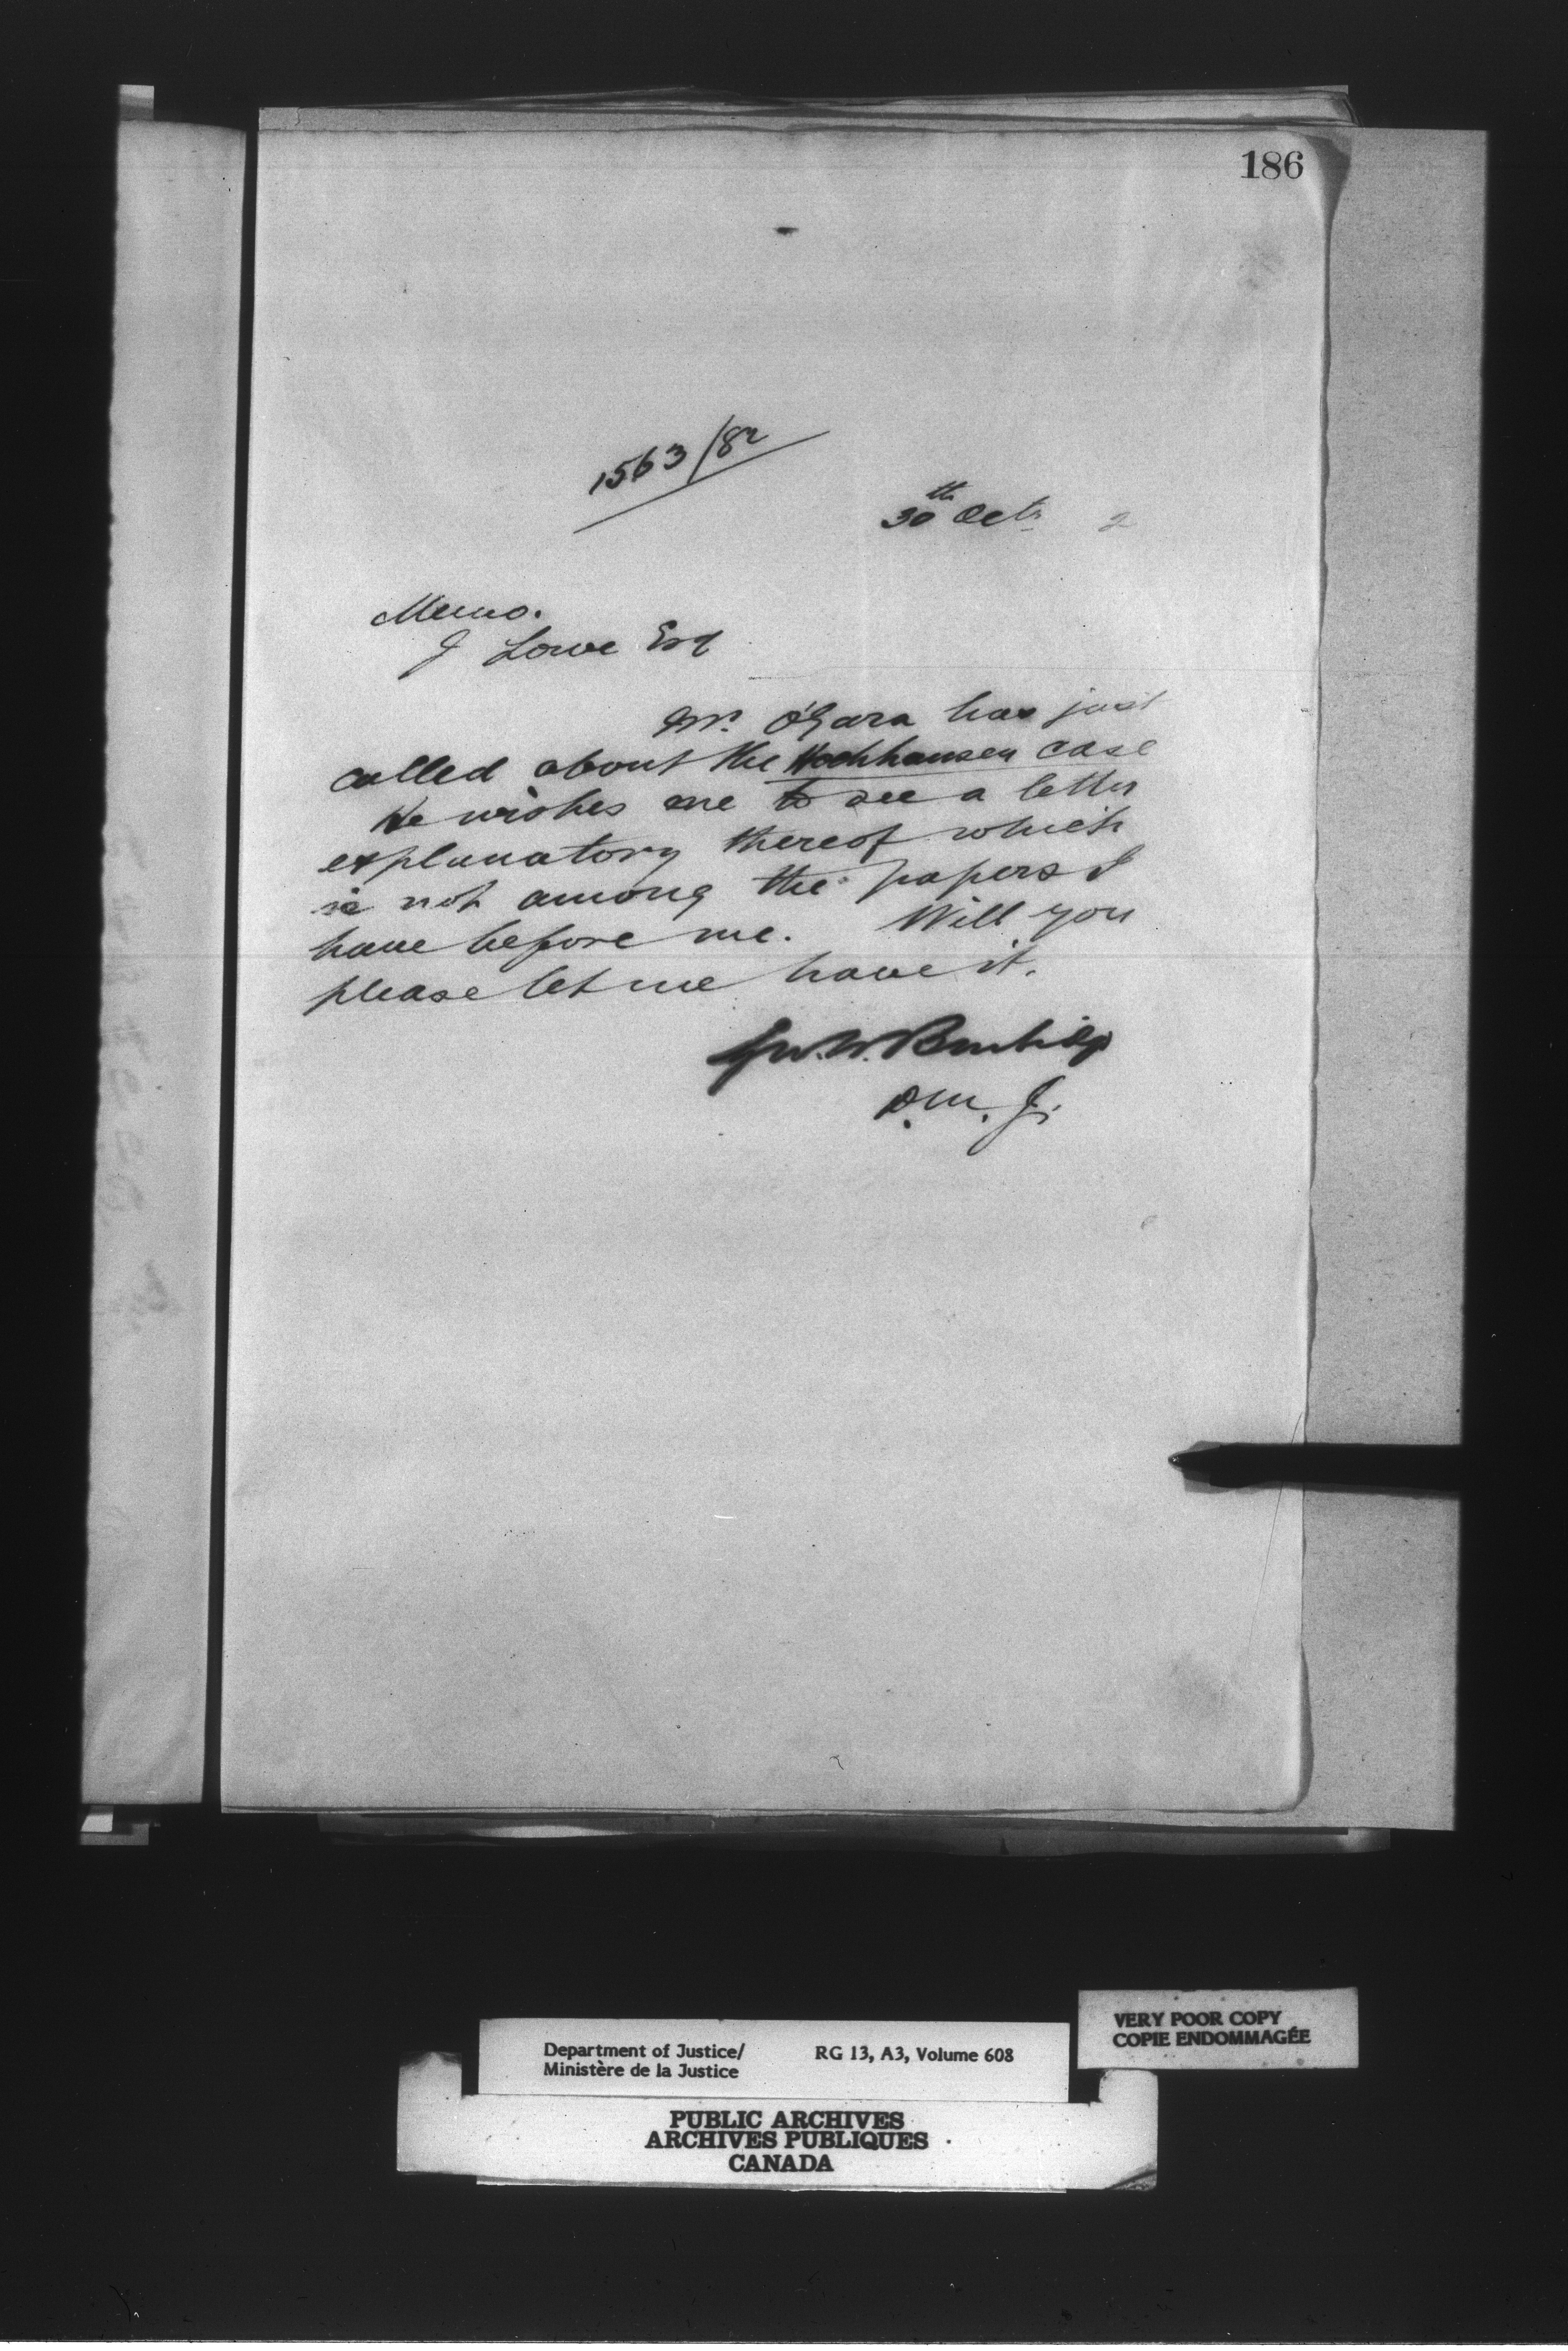 186
1563/82
30th Octr 2
Memo.
J Lowe Esq
Mr. O'Gara has just
called about the Hochhausen case
He wishes me to see a letter
explanatory thereof which
is not among the papers I
have before me. Will you
please let me have it.
Geo. W. Burbidge
D.M.J.
VERY POOR COPY
COPIE ENDOMMAGÉE
Department of Justice/ RG 13, A3, Volume 608
Ministère de la Justice
PUBLIC ARCHIVES
ARCHIVES PUBLIQUES
CANADA